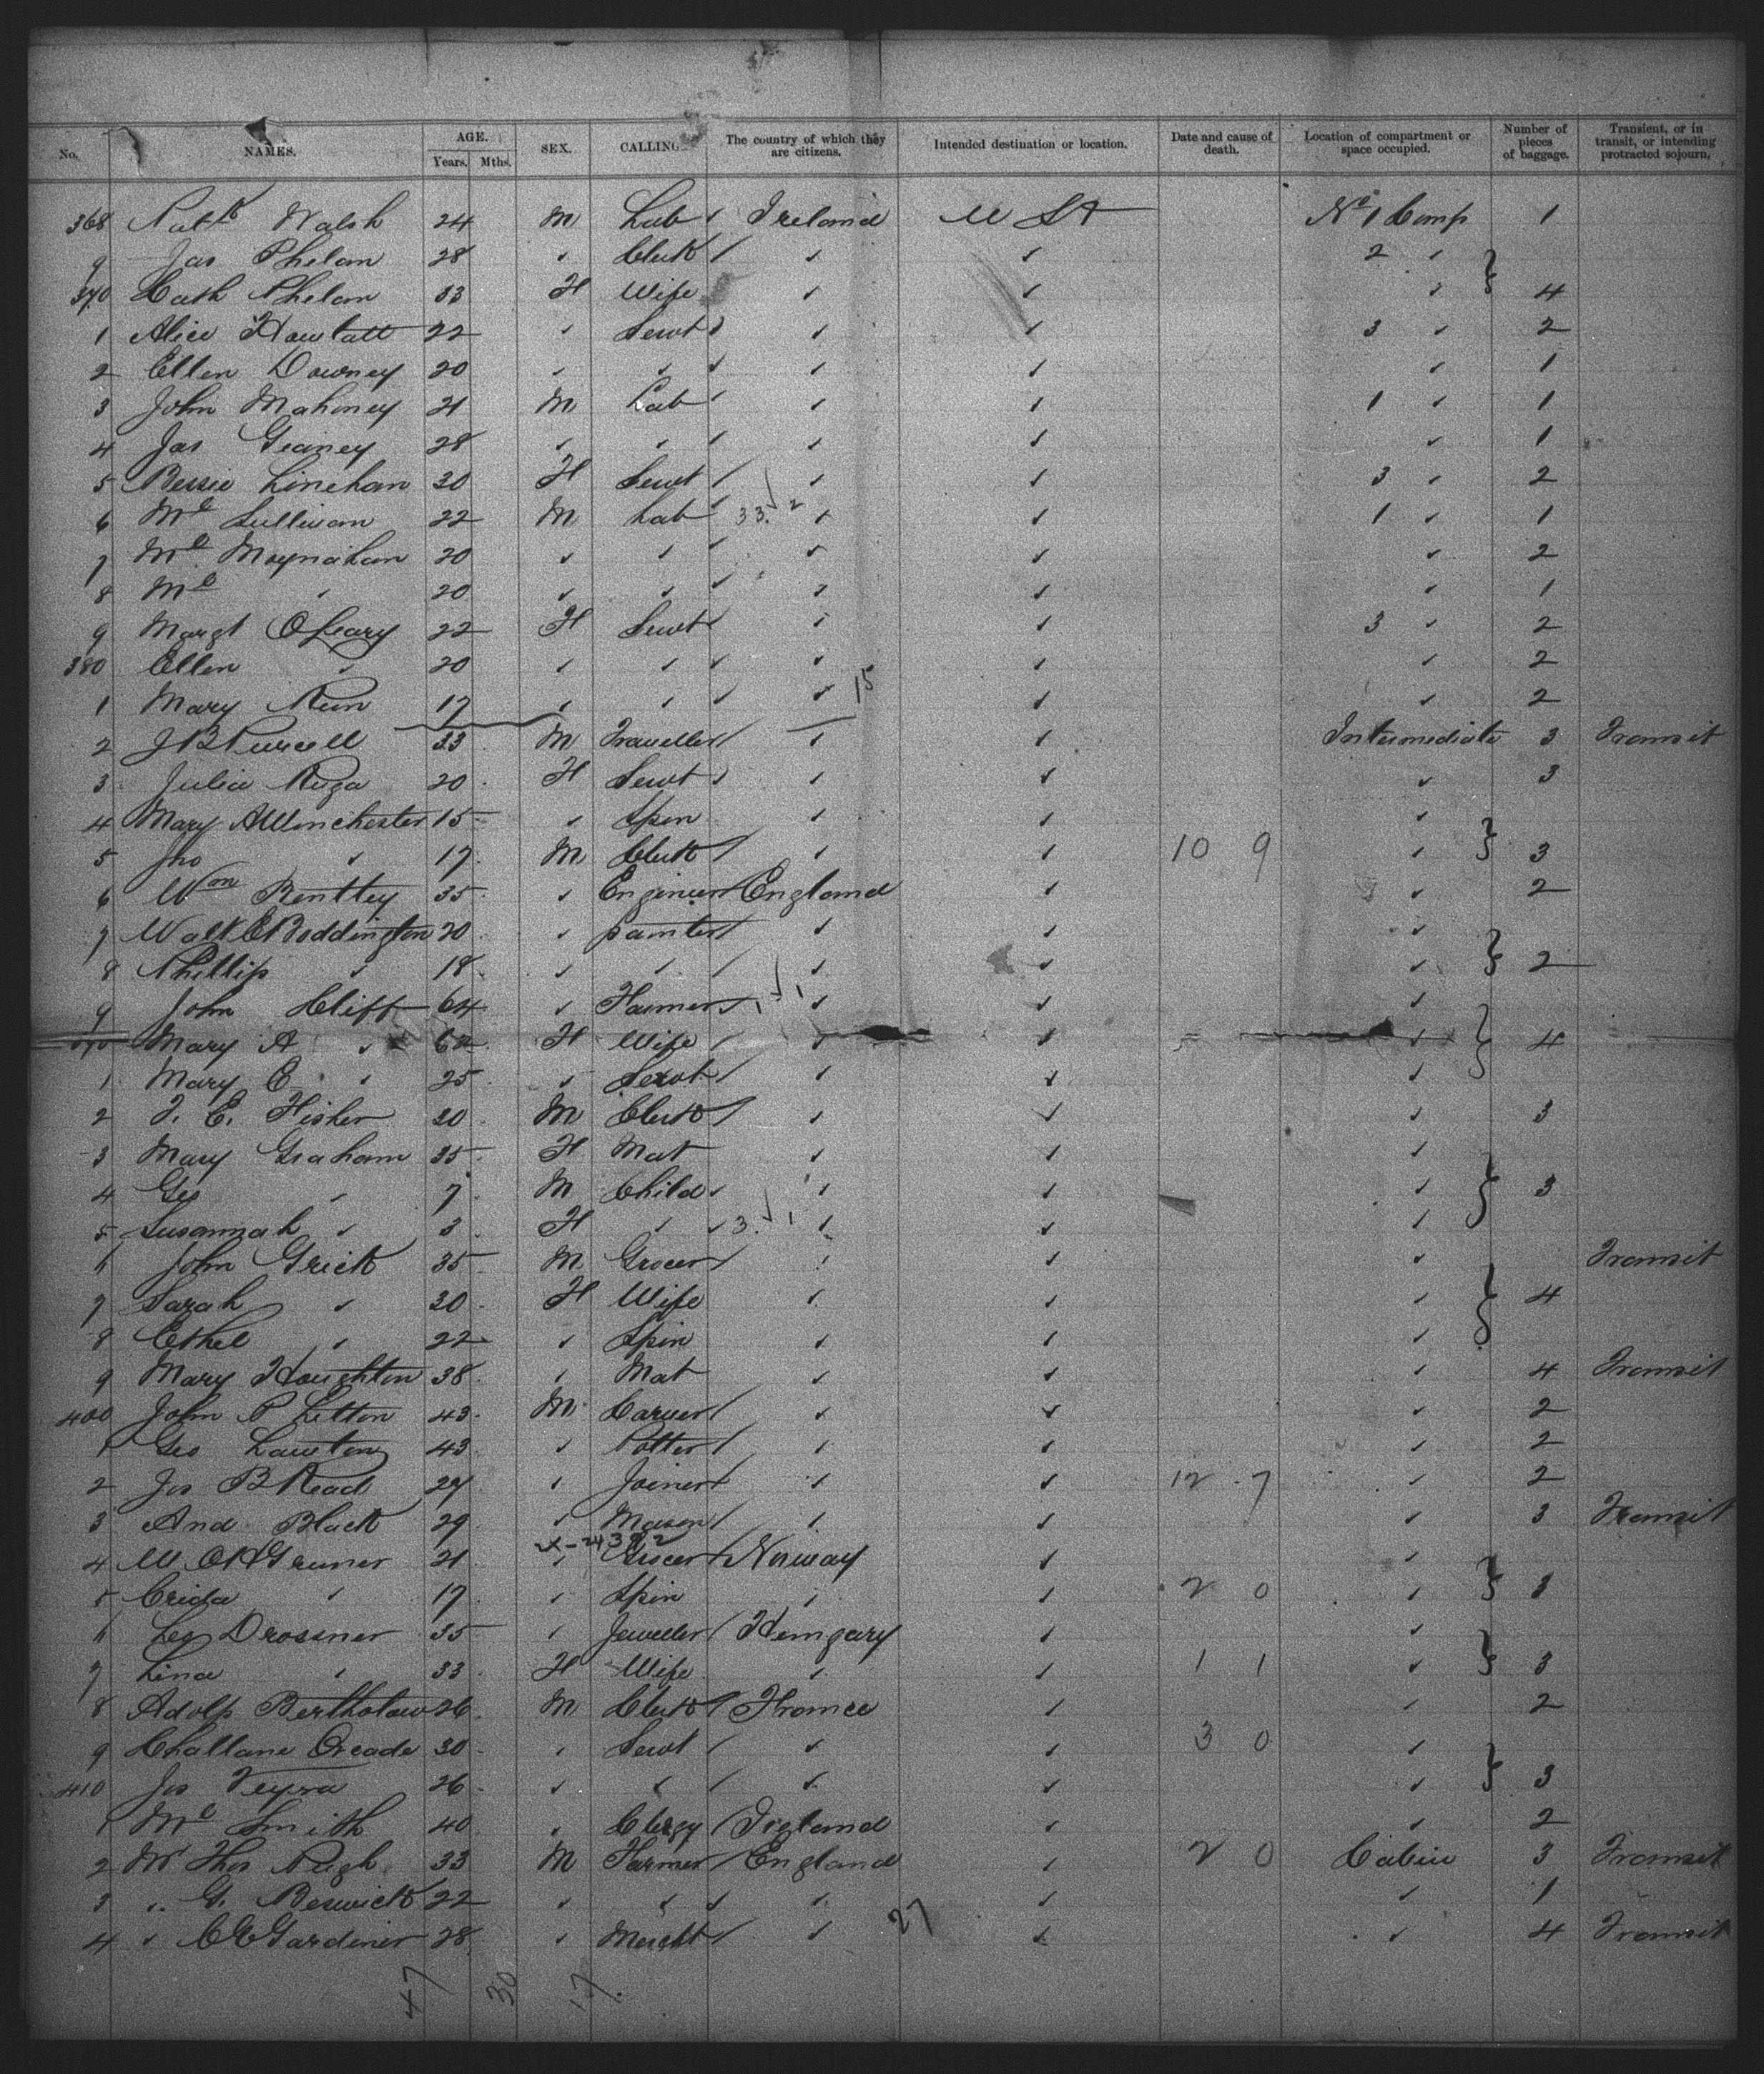 No. NAMES. AGE. Years. Mths. SEX. CALLING. The country of which they are citizens. Intended destination or location. Date and cause of death. Location of compartment or space occupied. Number of pieces of baggage. Transient, or in transit, or intending protracted sojourn.
368 Patk Walsh 24 M Lab Ireland U St No 1 Comp 1
9 Jas Phelan 28 " Clerk " " 2 "
370 Cath Phelan 33 F Wife " " " 4
1 Alice 22 " Servt " " 3 " 2
2 Ellen Downey 20 " " " " " 1
3 John Mahoney 21 M Lab " " 1 " 1
4 Jas Geaney 28 " " " " " 1
5 Bessie Linehan 20 F Servt " " 3 " 2
6 Ml Sullivan 22 M Lab 33 2 " " 1 " 1
7 Ml Moynahan 20 " " " " " 2
8 Ml " 20 " " " " " 1
9 Margt OLeary 22 F Servt " " 3 " 2
380 Ellen " 20 " " " " " 2
1 Mary 17 " " " 15 " " 2
2 J B Purcell 33 M Traveller " " Intermediate 3 Transit
3 Julia 20 F Servt " " " 3
4 Mary A Winchester 15 " Spin " " "
5 Jno " 17 M Clerk " " 10 9 " 3
6 Wm Bentley 35 " Engineer England " " 2
7 Walt E Boddington 20 " painter " " "
8 Phillip " 18 " " " " " 2
9 John Cliff 64 " Farmer 1 1 " " "
Mary A " F Wife " " " 4
1 Mary E " 25 " Servt " " "
2 T. E. Fisher 20 M Clerk " " " 3
3 Mary Graham 35 F Mat " " "
4 Geo " 7 M Child " " " 3
5 Susannah " 3 F " 3 1 " " "
6 John Grick 35 M Grocer " " " Transit
7 Sarah " 30 F Wife " " " 4
8 Ethel " 22 " Spin " " "
9 Mary Houghton 38 " Mat " " " 4 Transit
400 John P Litton 43 M Carver " " " 2
1 Geo Lawton 43 " Potter " " " 2
2 Jos B Read 27 " Joiner " " 12 7 " 2
3 And Black 29 " Mason " " " 3 Transit
4 21 " Grocer Norway " "
5 17 " Spin " " 2 0 " 3
6 Leo Drossner 35 " Jeweller Hungary " "
7 Lina " 33 F Wife " " 1 1 " 3
8 Adolp 26 M Clerk France " " 2
9 30 " Servt " " 3 0 "
410 Jos 26 " " " " " 3
1 Ml Smith 40 " Clergy Ireland " " 2
2 Mr Thos Pugh 33 M Farmer England " 2 0 Cabin 3 Transit
3 " G. Beswick 22 " " " " " 1
4 " C E Gardiner 28 " Mercht " 27 " " 4 Transit
47 30 17